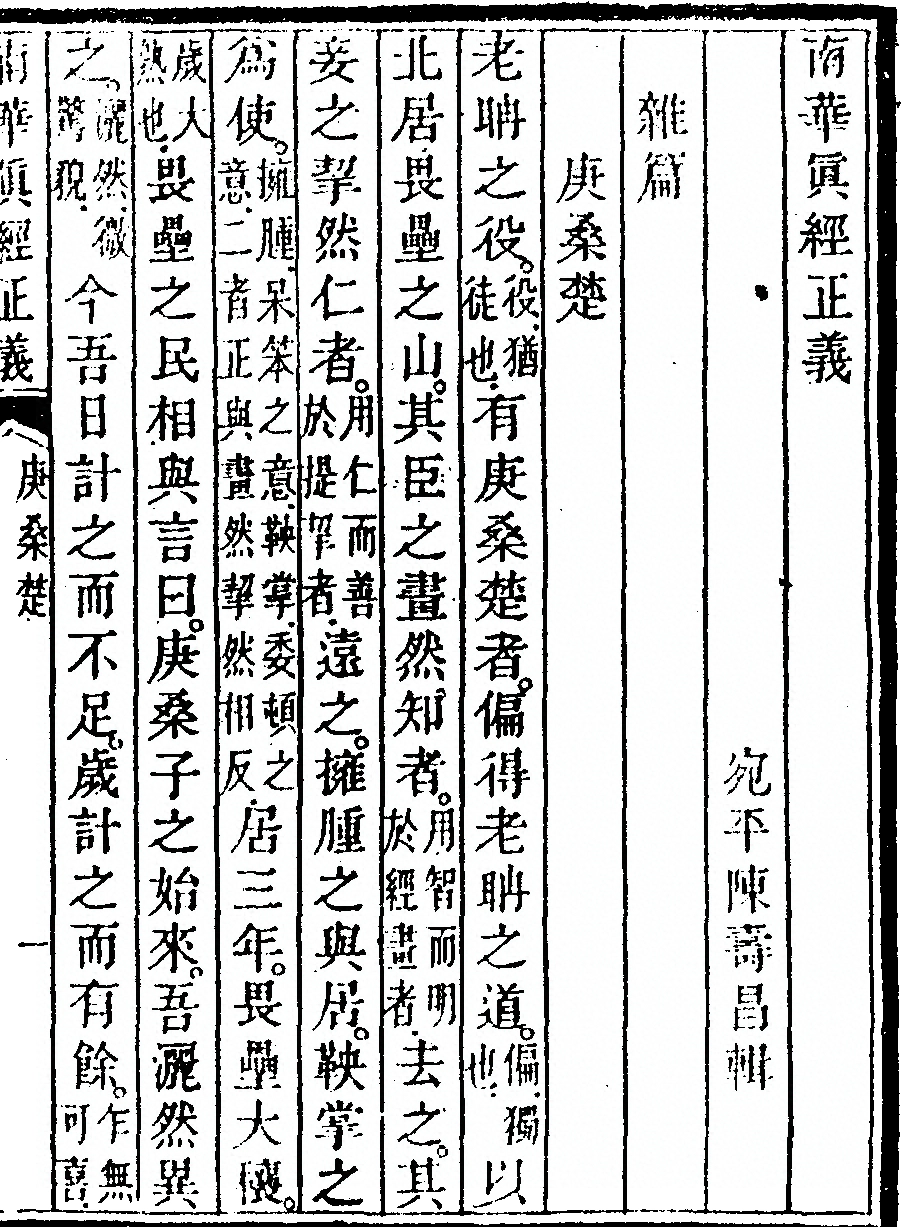 南華眞經正義
宛平陳壽昌輯
雜篇
庚桑楚
老聃之役。役、猶徒也、有庚桑楚者。偏得老聃之道。偏、獨也、以
北居畏壘之山。其臣之畫然知者。用智而明於經畫者、去之。其
妾之挈然仁者。用仁而善於提挈者、遠之。擁腫之與居。鞅掌之
爲使。擁腫、呆笨之意、鞅掌、委頓之意、二者正與畫然挈然相反、居三年。畏壘大穰。
歲大熟也、畏壘之民相與言曰。庚桑子之始來。吾灑然異
之。灑然、微驚貌、今吾日計之而不足。歲計之而有餘。乍無可喜、
南華眞經正義
庚桑楚
一